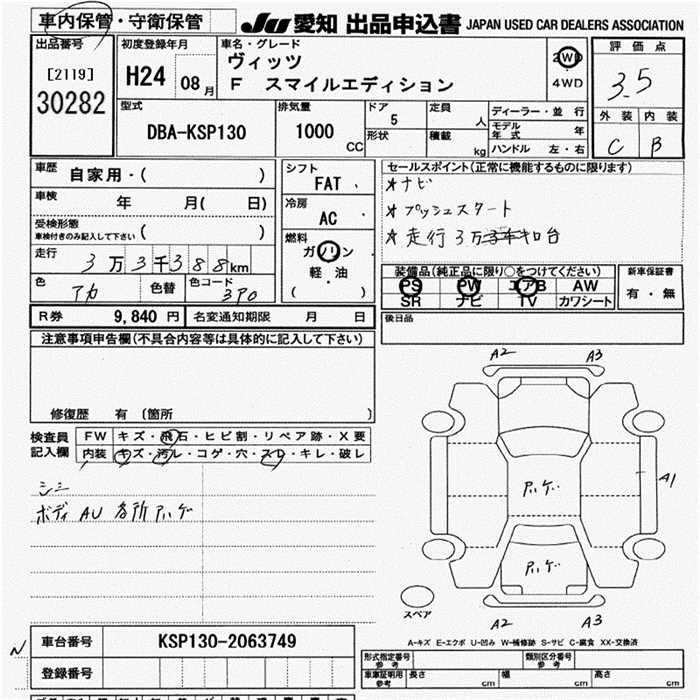 車内保管・守衛保管
JU 愛知 出品申込書 JAPAN USED CAR DEALERS ASSOCIATION
出品番号
[2119]
30282
初度登録年月
H24 08月
車名・グレード
ヴィッツ
F スマイルエディション
2WD
4WD
評価点
3.5
外装 内装
C B
型式
DBA-KSP130
排気量
1000
CC
ドア
5
形状
定員
人
積載
kg
ディーラー・並行
モデル年式 年
ハンドル 左・右
車歴
自家用・( )
車検
年 月( 日)
受検形態
車検付きのみ記入して下さい ( )
走行
3万3千388km
色
アカ
色替
色コード
3P0
シフト
FAT
冷房
AC
燃料
ガソリン
軽・油
( )
セールスポイント(正常に機能するものに限ります)
★ナビ
★プッシュスタート
★走行3万キロ台
装備品(純正品に限り○をつけてください)
PS PW エアB AW
SR ナビ TV カワシート
新車保証書
有・無
R券 9,840 円 名変通知期限 月 日
後日品
注意事項申告欄(不具合内容等は具体的に記入して下さい)
修復歴 有 〔箇所 〕
検査員
記入欄
FW キズ・飛石・ヒビ割・リペア跡・X要
内装 キズ・汚レ・コゲ・穴・スレ・キレ・破レ
シミ
ボディ AU 各所ハゲ
A2 A3
A1
スペア
A2 A3
A-キズ E-エクボ U-凹み W-補修跡 S-サビ C-腐食 XX-交換済
N
車台番号 KSP130-2063749
登録番号
形式指定番号
参考
類別区分番号
参考
車庫証明用
参考
長さ cm 幅 cm 高さ cm